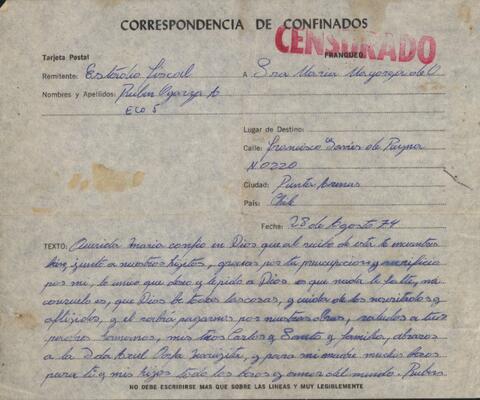 CORRESPONDENCIA DE CONFINADOS
CENSURADO
FRANQUEO
Tarjeta Postal
Remitente: Estadio Fiscal A Sra Maria Mayorga de O
Nombres y Apellidos: Ruben Oyarzo A
ECO 5
Lugar de Destino:
Calle: Francisco de Reyna
N 0220
Ciudad: Punta Arenas
País: Chile
Fecha: 28 de Agosto 74
TEXTO: Querida Maria confio en Dios que al recibo de esta te encuentres
bien junto a nuestros hijitos, gracias por tu preocupacion y sacrificio
por mi, lo unico que deseo y le pido a Dios es que nada le falte, mi
consuelo es, que Dios ve todas las cosas, y cuida de los
afligidos, y el sabra pagarnos por nuestras obras, saludos a tus
hermanos, mis tios Carlos y y familia, abrazos
a la Dda y para mi madre muchos besos
para tu y mis hijos todo los besos y amor del mundo. Ruben
NO DEBE ESCRIBIRSE MAS QUE SOBRE LAS LINEAS Y MUY LEGIBLEMENTE